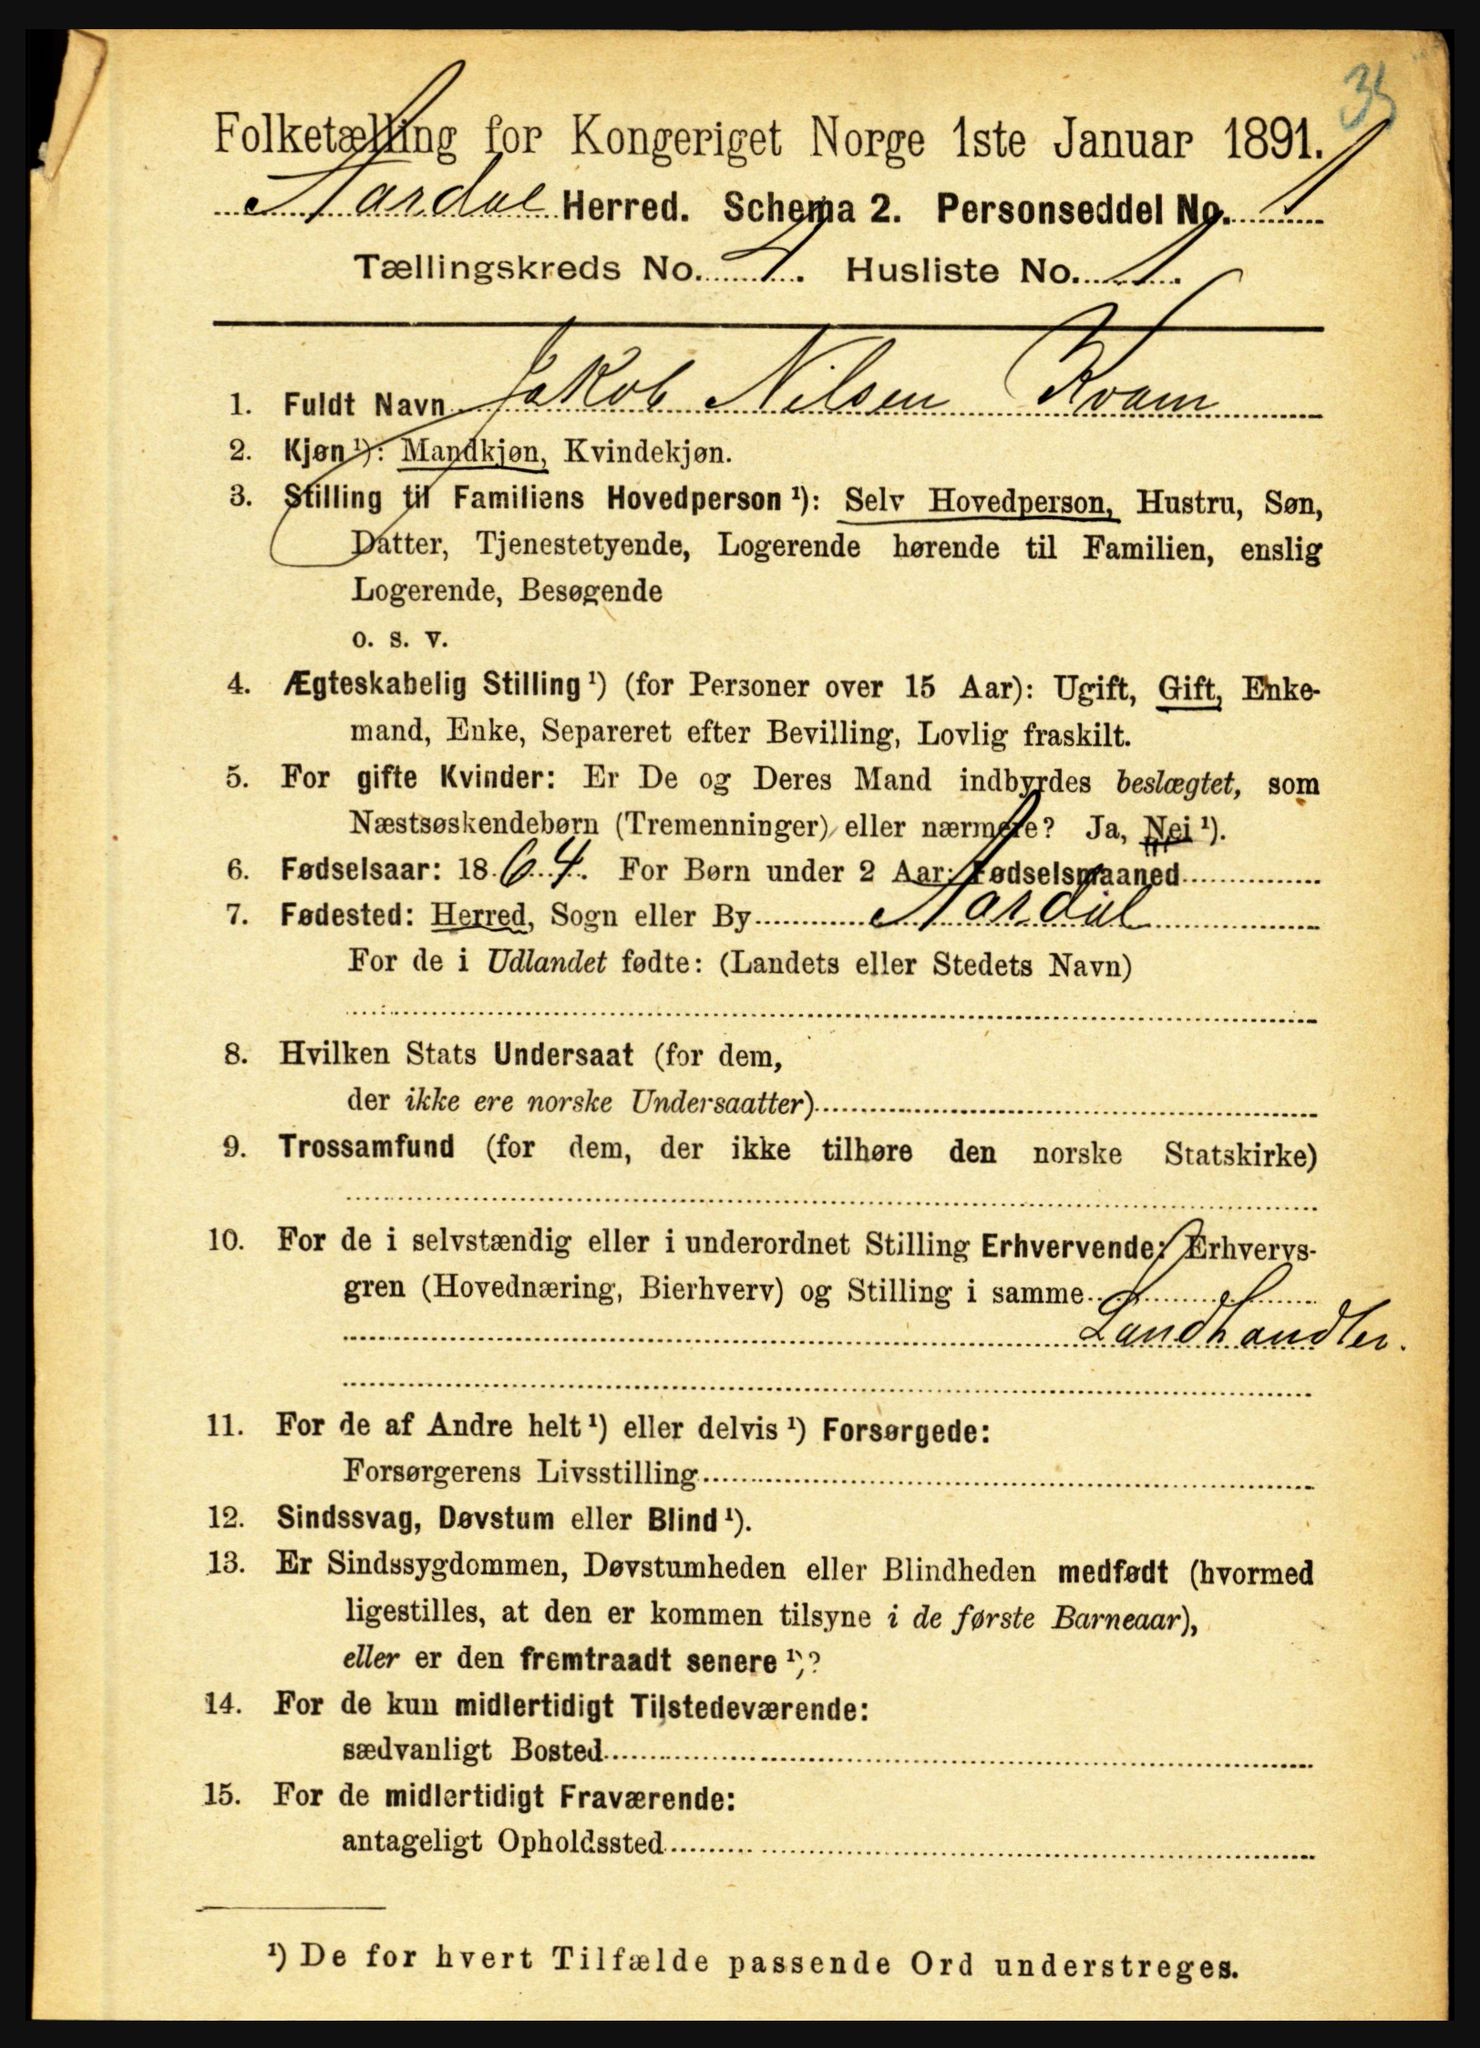 35
Folketælling for Kongeriget Norge 1ste Januar 1891.
Aardal Herred. Schema 2. Personseddel No. 1
Tællingskreds No. 1. Husliste No. 1.
1. Fuldt Navn Jakob Nilsen Kvam
2. Kjøn ¹): Mandkjøn, Kvindekjøn.
3. Stilling til Familiens Hovedperson ¹): Selv Hovedperson, Hustru, Søn,
Datter, Tjenestetyende, Logerende hørende til Familien, enslig
Logerende, Besøgende
o. s. v.
4. Ægteskabelig Stilling ¹) (for Personer over 15 Aar): Ugift, Gift, Enke-
mand, Enke, Separeret efter Bevilling, Lovlig fraskilt.
5. For gifte Kvinder: Er De og Deres Mand indbyrdes beslægtet, som
Næstsøskendebørn (Tremenninger) eller nærmere? Ja, Nei ¹).
6. Fødselsaar: 1864. For Børn under 2 Aar: Fødselsmaaned
7. Fødested: Herred, Sogn eller By Aardal
For de i Udlandet fødte: (Landets eller Stedets Navn)
8. Hvilken Stats Undersaat (for dem,
der ikke ere norske Undersaatter)
9. Trossamfund (for dem, der ikke tilhøre den norske Statskirke)
10. For de i selvstændig eller i underordnet Stilling Erhvervende: Erhvervs-
gren (Hovednæring, Bierhverv) og Stilling i samme
Landhandler.
11. For de af Andre helt ¹) eller delvis ¹) Forsørgede:
Forsørgerens Livsstilling
12. Sindssvag, Døvstum eller Blind ¹).
13. Er Sindssygdommen, Døvstumheden eller Blindheden medfødt (hvormed
ligestilles, at den er kommen tilsyne i de første Barneaar),
eller er den fremtraadt senere ¹)?
14. For de kun midlertidigt Tilstedeværende:
sædvanligt Bosted
15. For de midlertidigt Fraværende:
antageligt Opholdssted
¹) De for hvert Tilfælde passende Ord understreges.